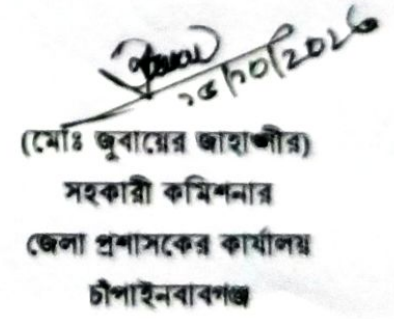 (মোঃ জুবায়ের জাহাঙ্গীর)
সহকারী কমিশনার
জেলা প্রশাসকের কার্যালয়
চাঁপাইনবাবগঞ্জ